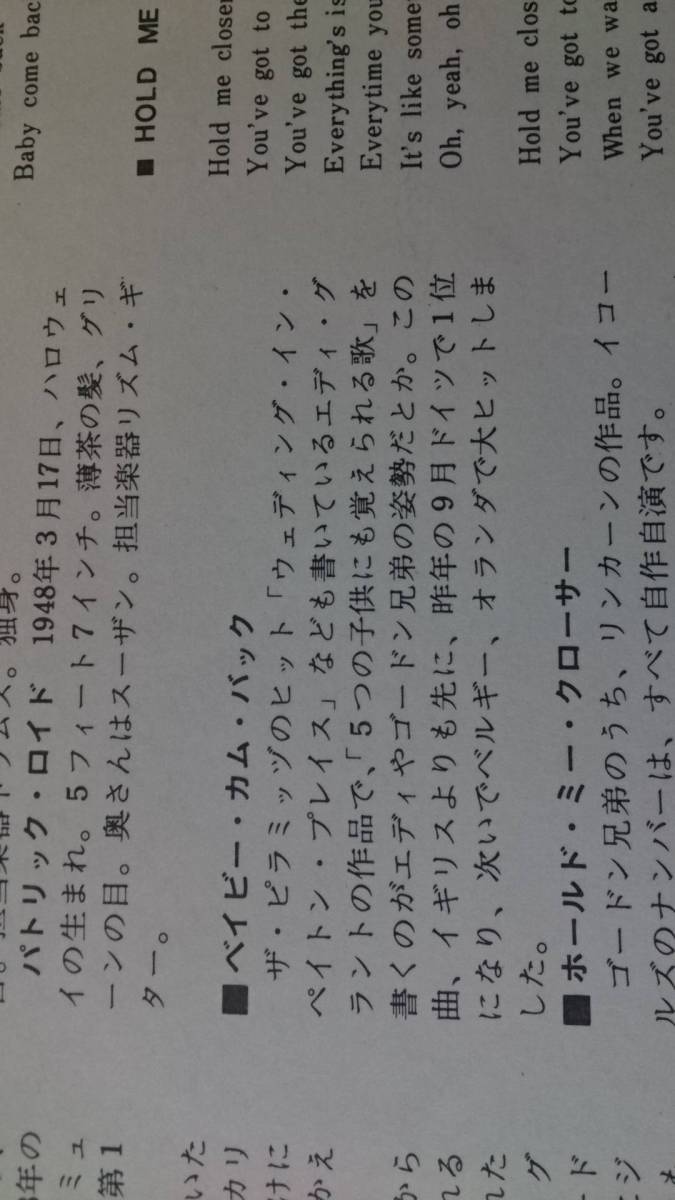 Baby come bac
■ HOLD ME
Hold me closer
You've got to
You've got the
Everything's is
Everytime you
It's like some
Oh, yeah, oh
Hold me clos
You've got to
When we wa
You've got a
独身。
パトリック・ロイド　1948年3月17日、ハロウェ
イの生まれ。5フィート7インチ。薄茶の髪、グリ
ーンの目。奥さんはスーザン。担当楽器リズム・ギ
ター。
■ベイビー・カム・バック
ザ・ピラミッヅのヒット「ウェディング・イン・
ペイトン・プレイス」なども書いているエディ・グ
ラントの作品で、「5つの子供にも覚えられる歌」を
書くのがエディやゴードン兄弟の姿勢だとか。この
曲、イギリスよりも先に、昨年の9月ドイツで1位
になり、次いでベルギー、オランダで大ヒットしま
した。
■ホールド・ミー・クローサー
ゴードン兄弟のうち、リンカーンの作品。イコー
ルズのナンバーは、すべて自作自演です。
年の
ミュ
第1
いた
カリ
けに
かえ
から
れる
れた
グ
ード
ジ